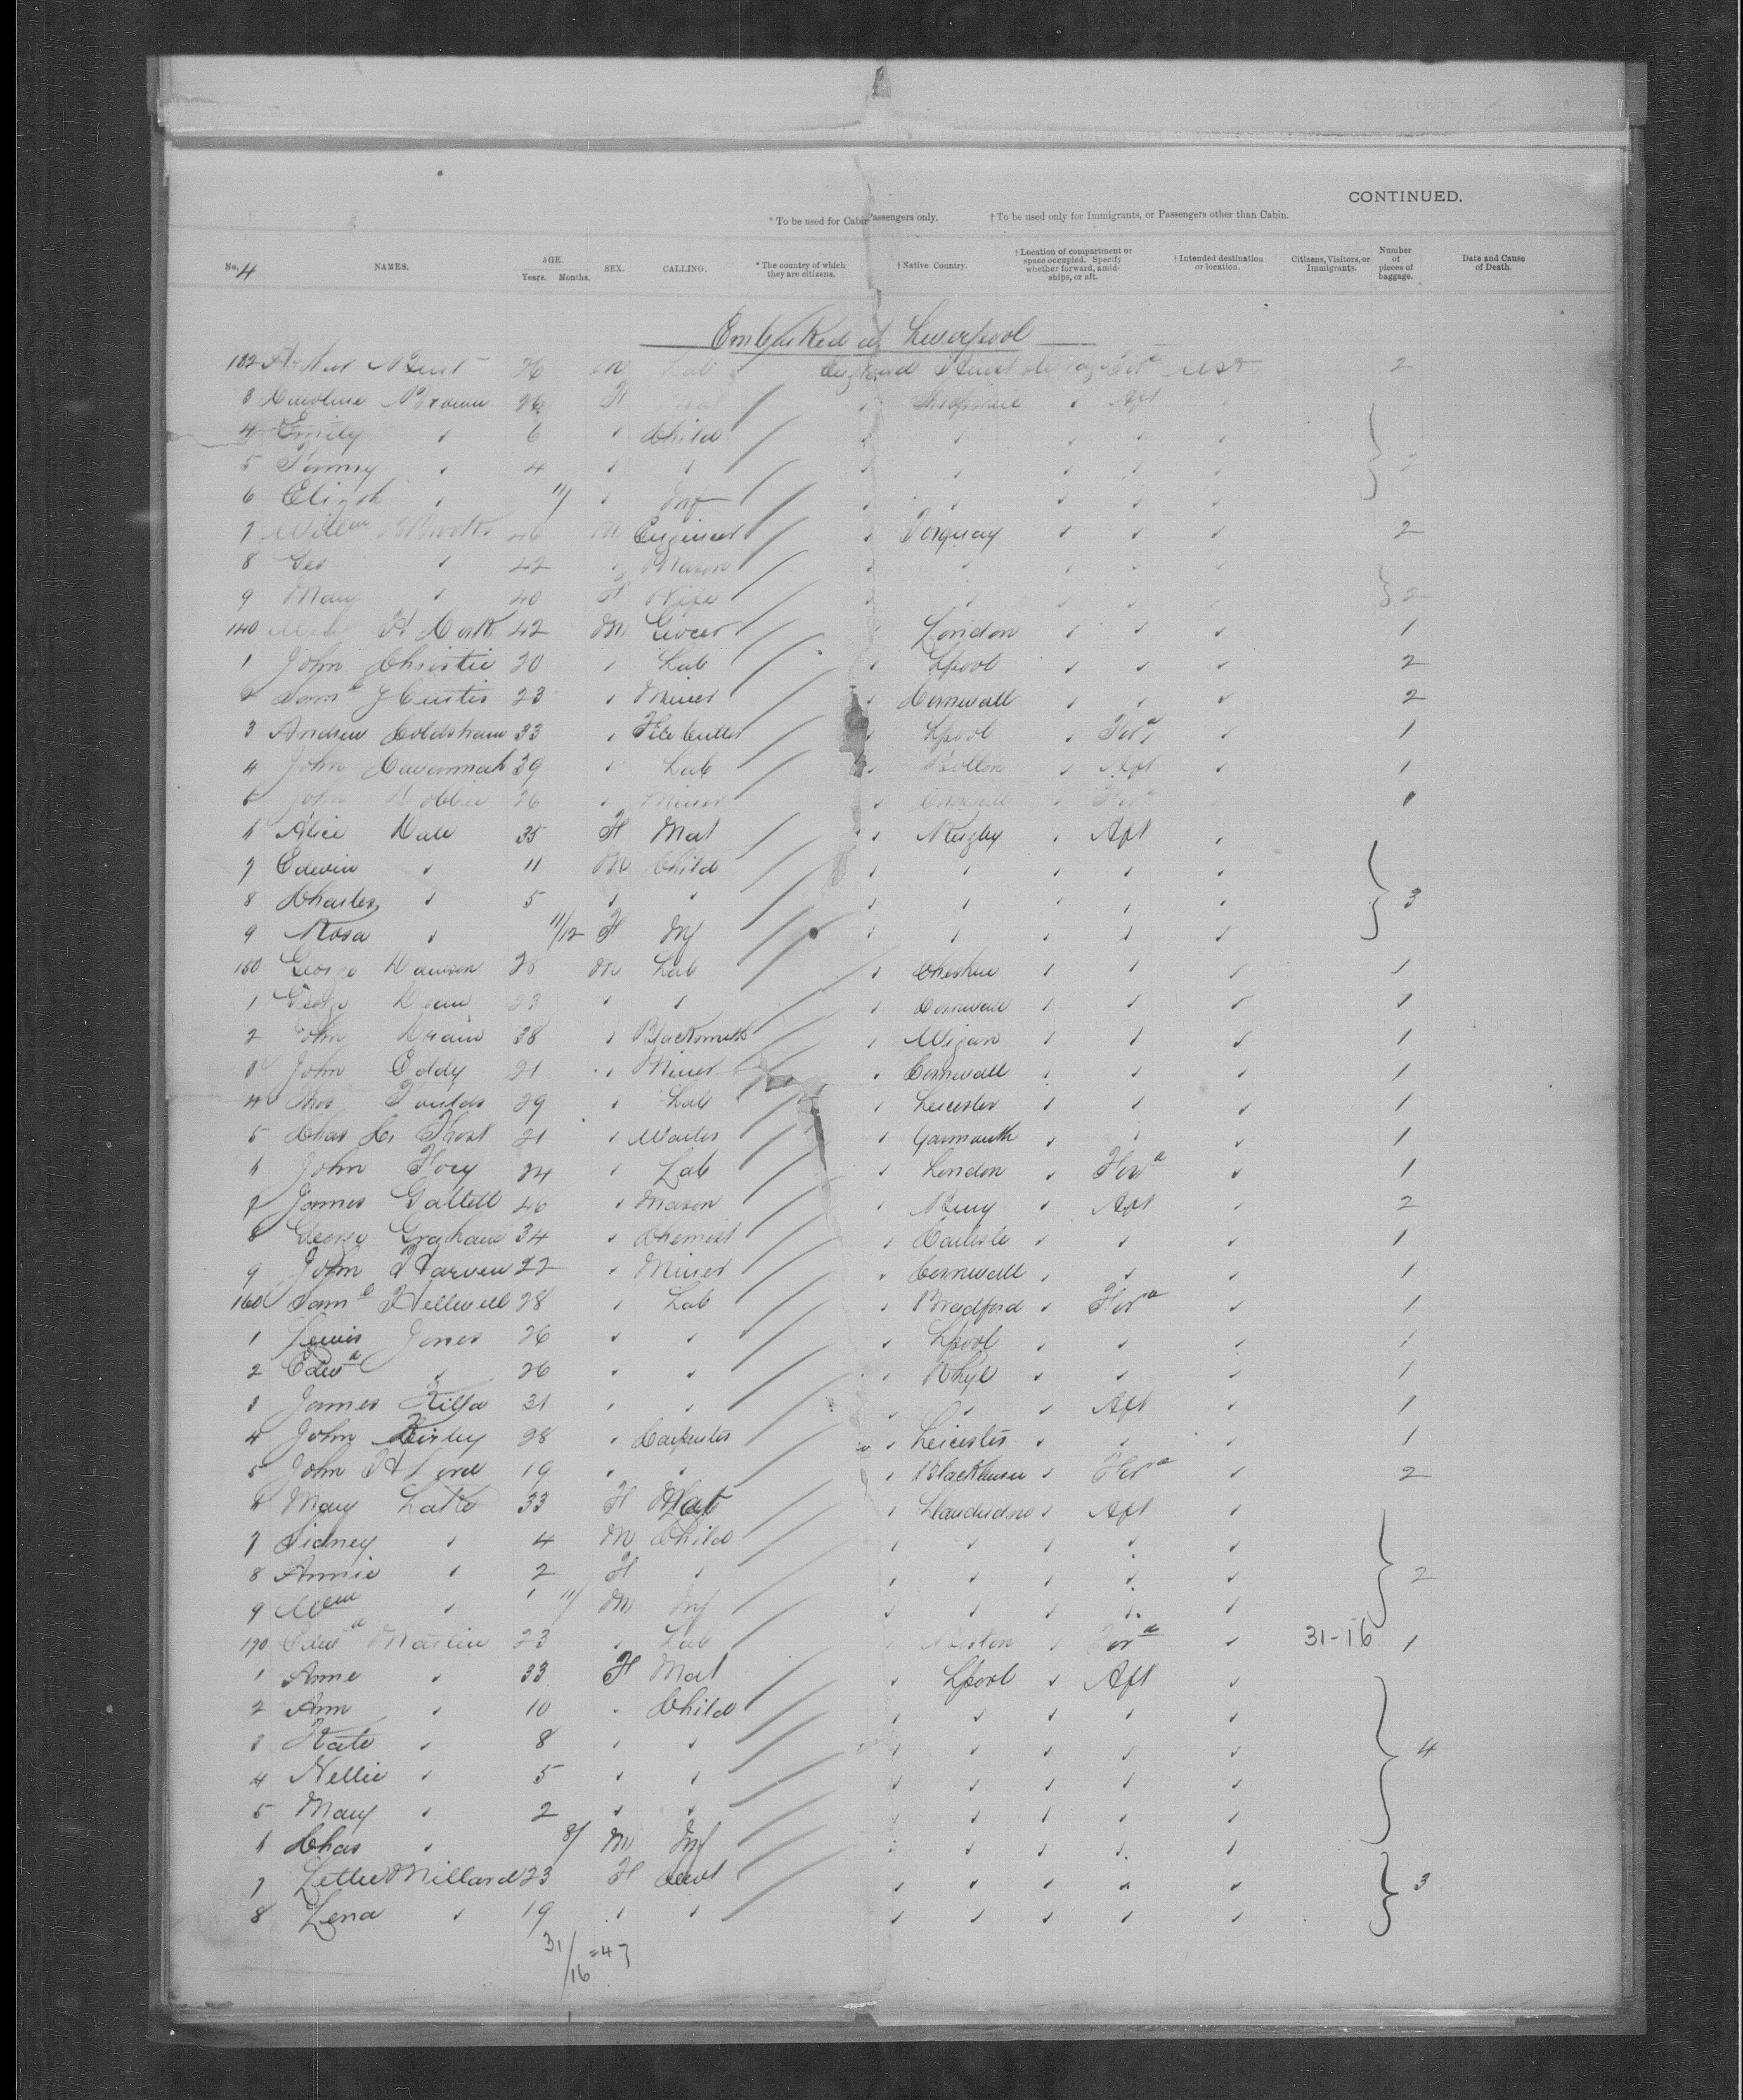 CONTINUED.
* To be used for Cabin Passengers only. † To be used only for Immigrants, or Passengers other than Cabin.
No. 4 NAMES. AGE. Years. Months. SEX. CALLING. * The country of which they are citizens. † Native Country. † Location of compartment or space occupied. Specify whether forward, amidships, or aft. † Intended destination or location. Citizens, Visitors, or Immigrants. Number of pieces of baggage. Date and Cause of Death.
Embarked at Liverpool
132 Arthur 26 m Lab England 2
3 Caroline Brown 26 F Aft
4 Emily " 6 " Child " " " " "
5 " 4 " " " " " " " 2
6 Elizth " 11/ " Inf " " " " "
7 Willm Brooks 46 m Engineer " Torquay " " " 2
8 Geo " 42 " Mason " " " " "
9 Mary " 40 F Wife " " " " " 2
140 H Cork 42 m Grocer " London " " " 1
1 John Christie 20 " Lab " Lpool " " " 2
2 Saml J Curtis 23 " Miner " Cornwall " " " 2
3 Andrew Coldstream 33 " File Cutter " Lpool " Ford " 1
4 John Cavannah 39 " Lab " Bolton " Aft " 1
5 John Dobbie 26 " Miner " Cornwall " Ford " 1
6 Alice Dale 35 F Mat " Rugby " Aft "
7 Edwin " 11 m Child " " " " "
8 Charles " 5 " " " " " " " 3
9 Rosa " 11/12 F Inf " " " " "
150 George Dawson 28 m Lab " Cheshire " " " 1
1 George 23 " " " Cornwall " " " 1
2 John 38 " Blacksmith " Wigan " " " 1
3 John Eddy 21 " Miner " Cornwall " " " 1
4 Thos Foulds 29 " Lab " Leicester " " " 1
5 Chas C. Frost 21 " Waiter " Yarmouth " " " 1
6 John Foy 24 " Lab " London " Ford " 1
7 James 46 " Mason " Bury " Aft " 2
8 George Graham 34 " Chemist " Carlisle " " " 1
9 John Harven 22 " Miner " Cornwall " " " 1
160 Saml Helliwell 28 " Lab " Bradford " Ford " 1
1 Lewis Jones 26 " " " Lpool " " " 1
2 Edwd " 26 " " " Rhyl " " " 1
3 James 31 " " " " " Aft " 1
4 John Kirby 28 " Carpenter " Leicester " " " 1
5 John H Lord 19 " " " " Ford " 2
6 Mary Lake 33 F Mat " Llandudno " Aft "
7 Sidney " 4 m Child " " " " "
8 Annie " 2 F " " " " " " 2
9 Wm " 11/ m Inf " " " " "
170 Edwd Martin 23 " Lab " " Ford " 31-16 1
1 Anne " 33 F Mat " Lpool " Aft "
2 Ann " 10 " Child " " " " "
3 Kate " 8 " " " " " " "
4 Nellie " 5 " " " " " " " 4
5 Mary " 2 " " " " " " "
6 Chas " 8/ m Inf " " " " "
7 Lettie Millard 23 F Servt " " " " " 3
8 Lena " 19 " " " " " " "
31/16 = 47